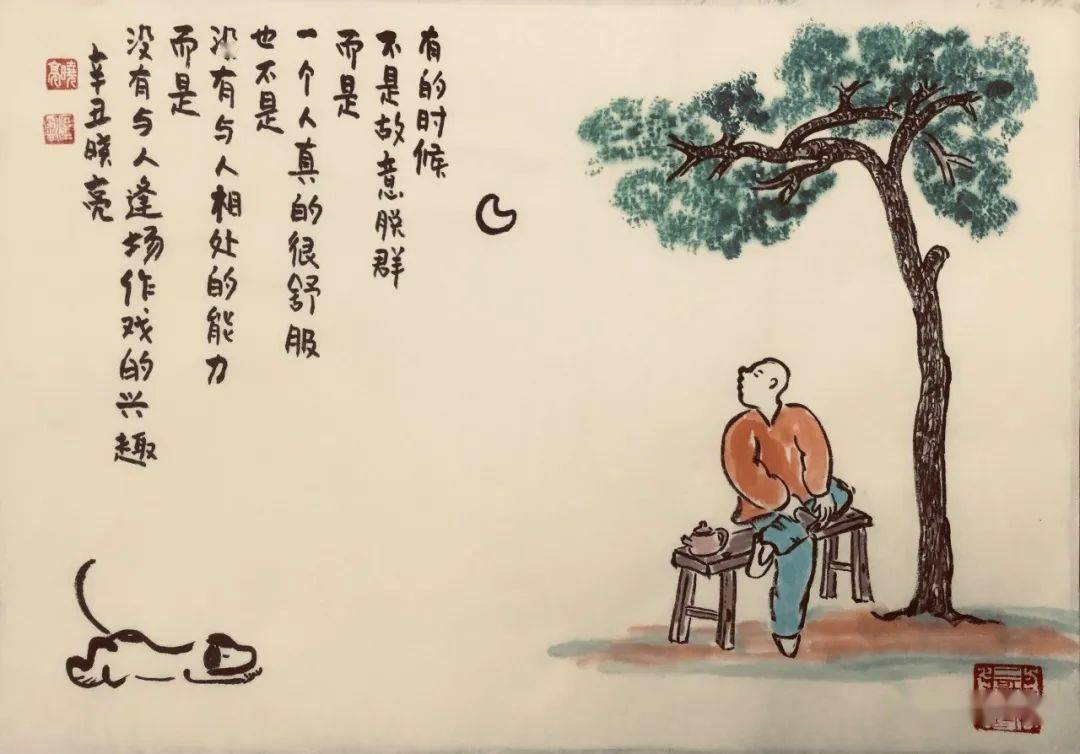 有的时候
不是故意脱群
而是
一个人真的很舒服
也不是
没有与人相处的能力
而是
没有与人逢场作戏的兴趣
辛丑晓亮